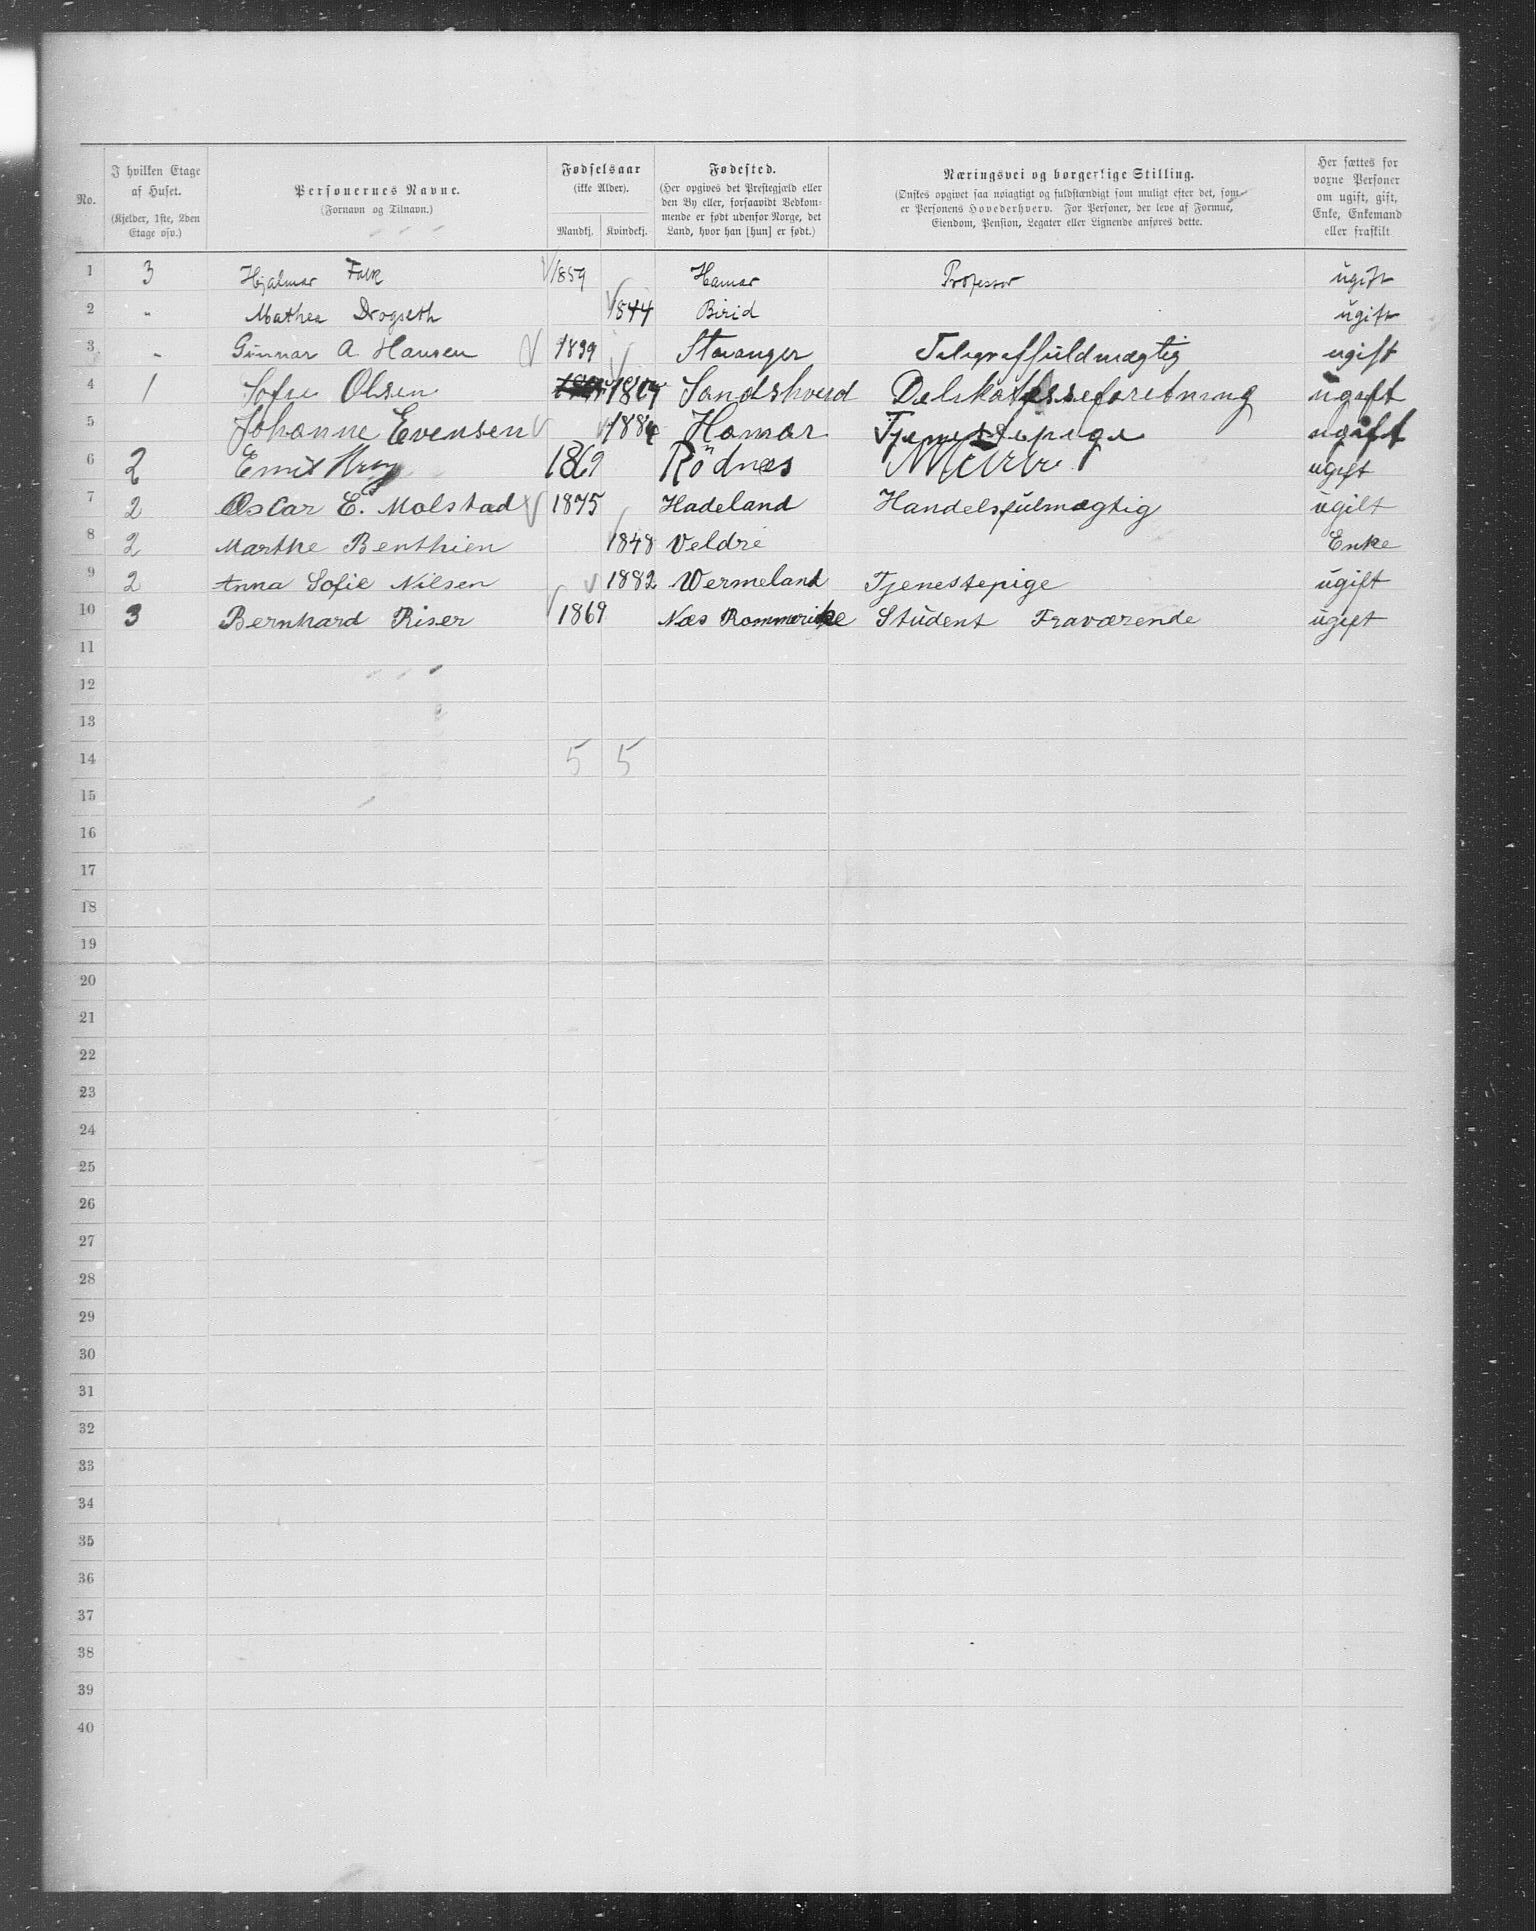 No.	I hvilken Etage af Huset. (Kjelder, 1ste, 2den Etage osv.)	Personernes Navne. (Fornavn og Tilnavn.)	Fødselsaar (ikke Alder). Mandkj. Kvindekj.	Fødested. (Her opgives det Prestegjæld eller den By eller, forsaavidt Vedkommende er født udenfor Norge, det Land, hvor han [hun] er født.)	Næringsvei og borgerlige Stilling. (Ønskes opgivet saa nøiagtigt og fuldstændigt som muligt efter det, som er Personens Hovederhverv. For Personer, der leve af Formue, Eiendom, Pension, Legater eller Lignende anføres dette.	Her sættes for voxne Personer om ugift, gift, Enke, Enkemand eller fraskilt
1	3	Hjalmar Falk	1859	Hamar	Professor	ugift
2	"	Mathea Drogseth	1844	Birid	ugift
3	"	Gunnar A. Hansen	1899	Stavanger	Telegraffuldmægtig	ugift
4	1	Sofie Olsen	Sandshverd	Delikatesseforetning	ugift
5	Johanne Evensen	1884	Hamar	Tjenestepige	ugift
6	2	Emil	1869	Rödnæs	Murer	ugift
7	2	Oscar E. Molstad	1875	Hadeland	Handelsfulmægtig	ugift
8	2	Marthe Benthien	1848	Veldre	Enke
9	2	Anna Sofie Nilsen	1882	Wermeland	Tjenestepige	ugift
10	3	Bernhard Riser	1869	Næs Rommerike	Student Fraværende	ugift
11
12
13
14	5	5
15
16
17
18
19
20
21
22
23
24
25
26
27
28
29
30
31
32
33
34
35
36
37
38
39
40